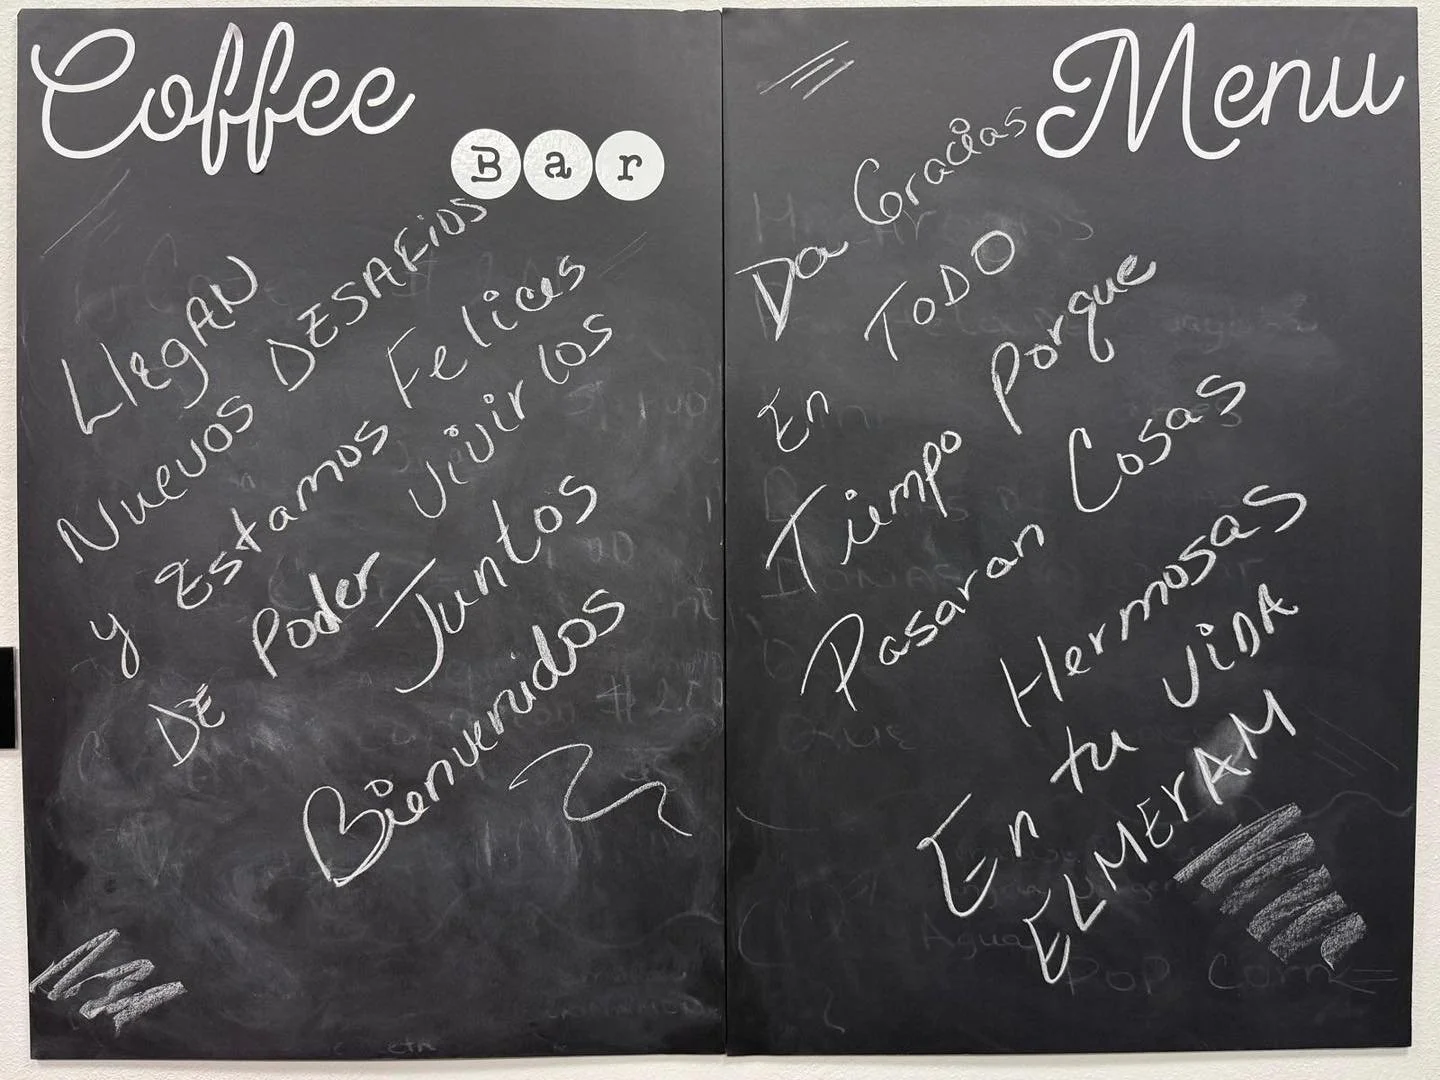 Coffee
Bar
LlegAN
Nuevos DESAFiOS
y Estamos Felices
DE Poder Vivir los
Juntos
Bienvenidos
Menu
Da Gracias
En TODO
Tiempo Porque
Pasaran Cosas
Hermosas
En tu ViDA
ELMErAM
Agua
POP Corn